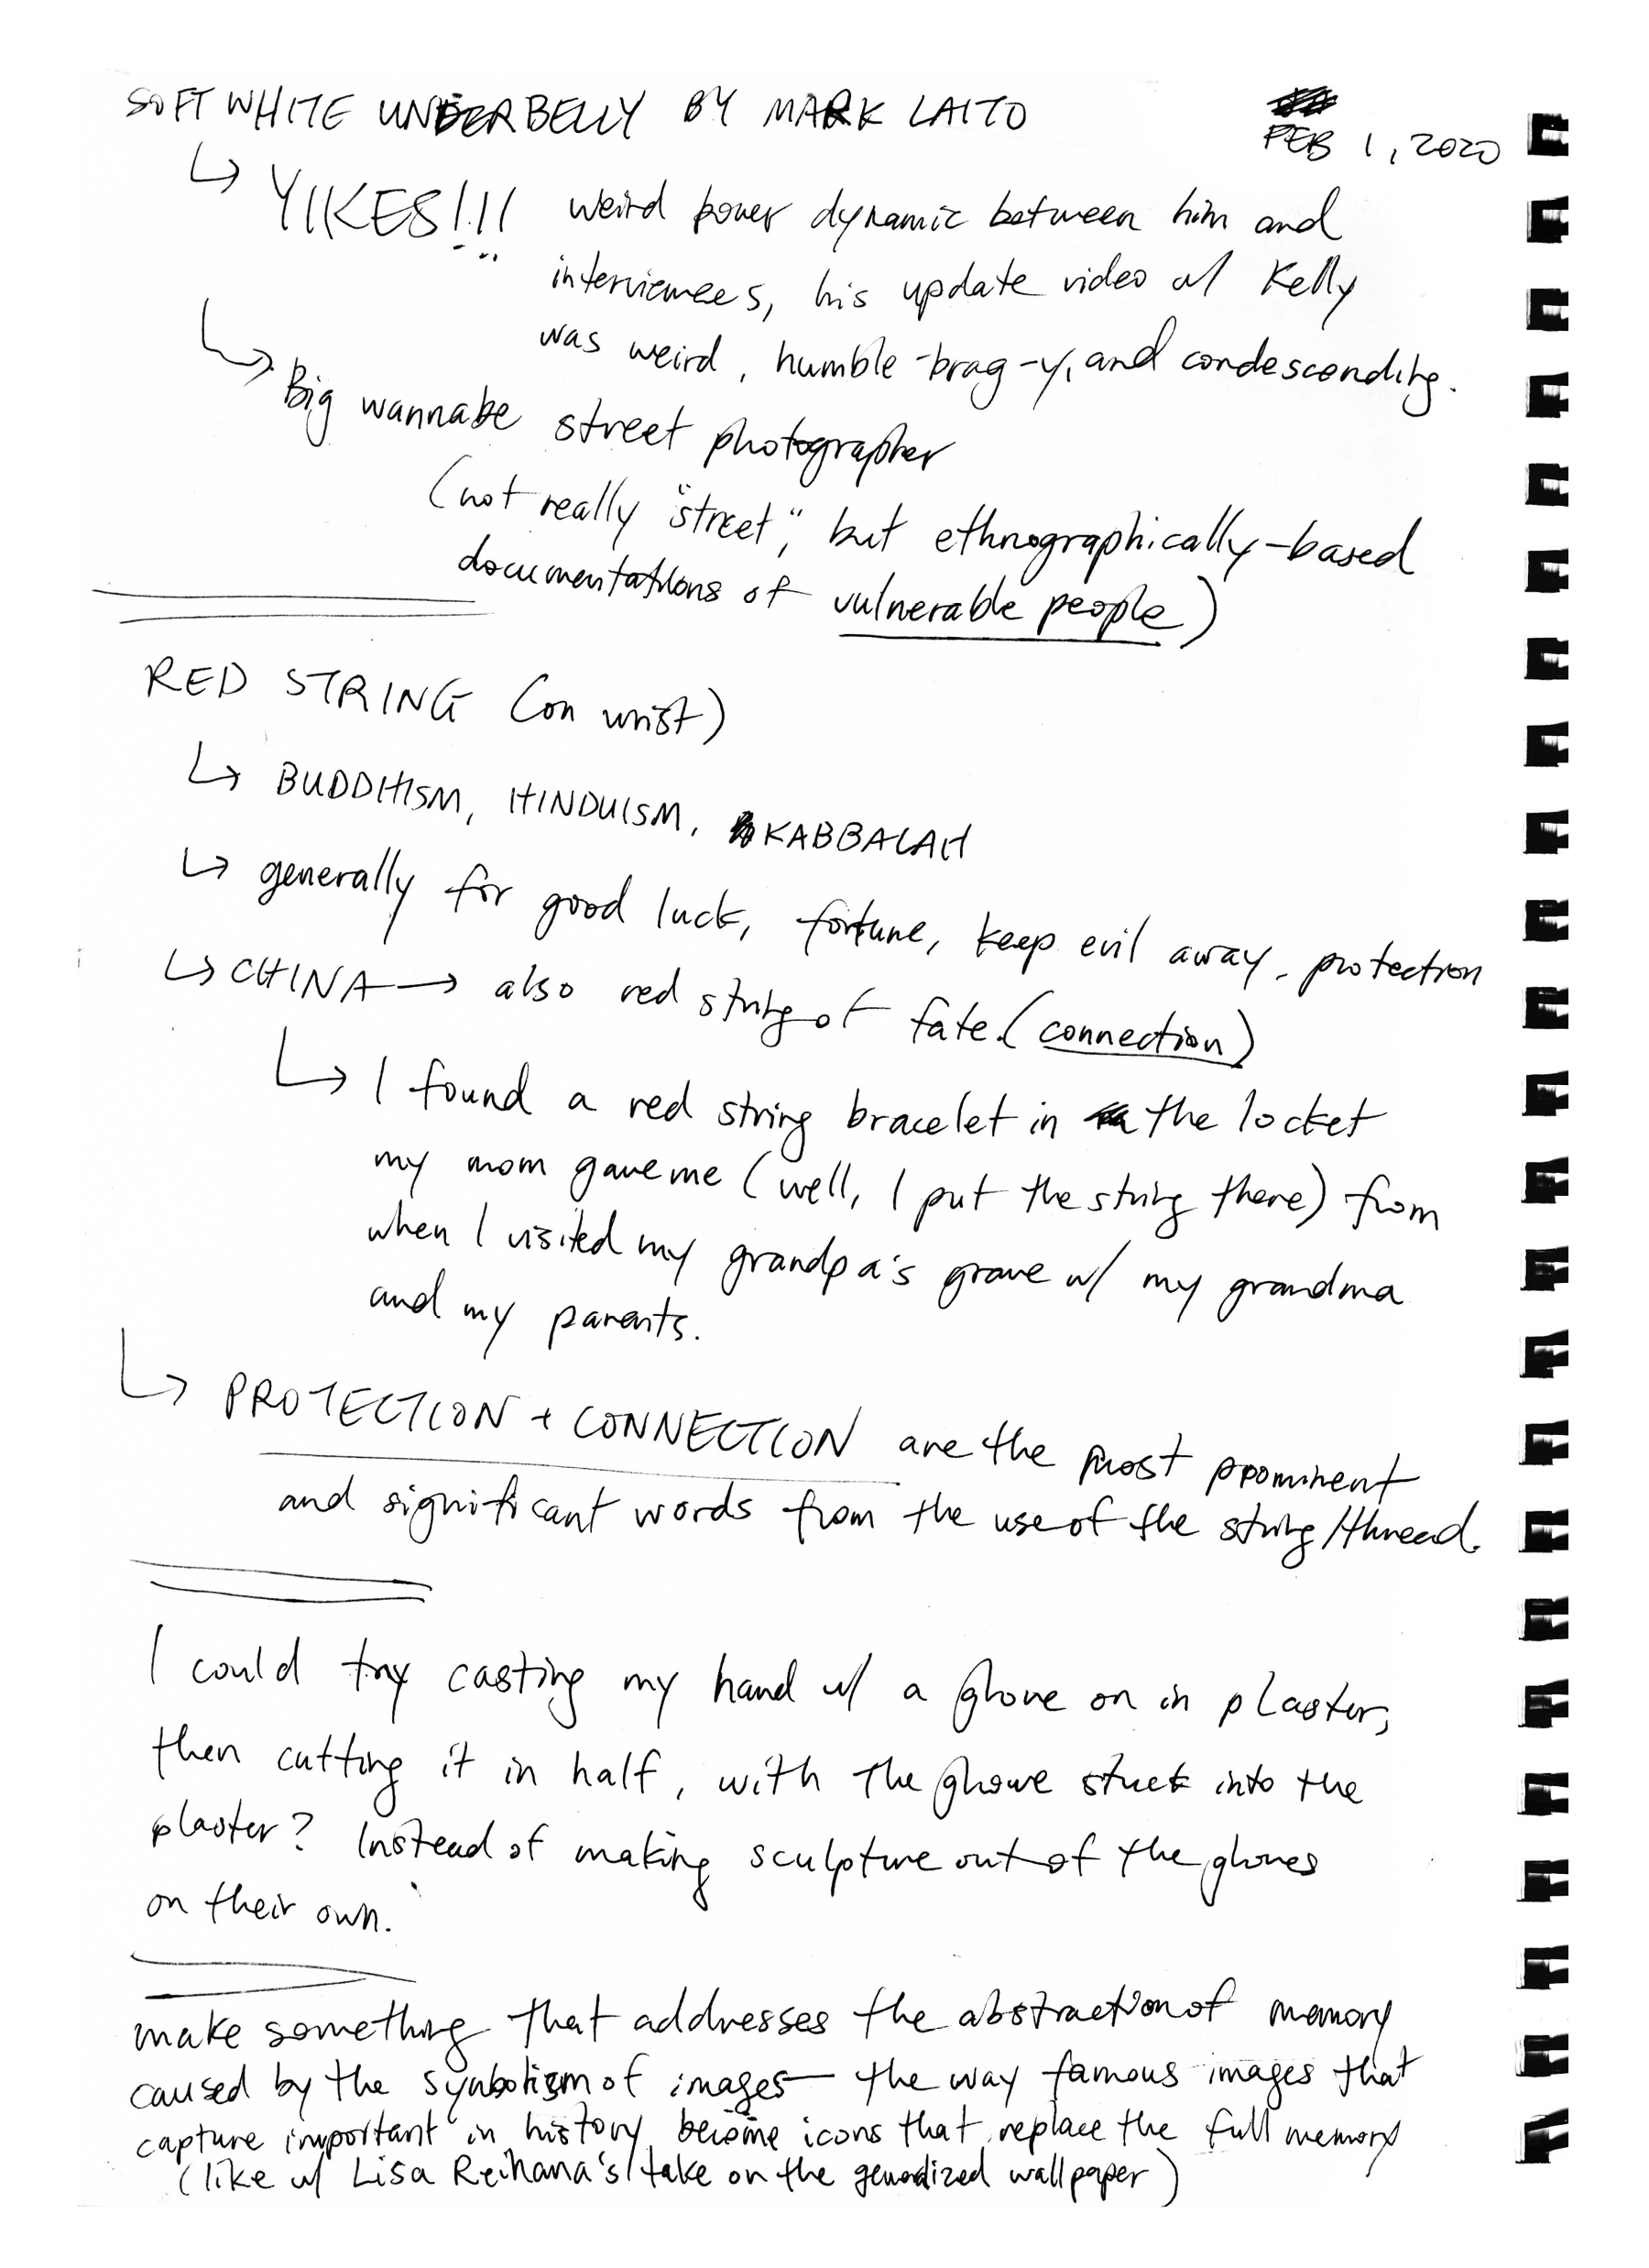 SOFT WHITE UNDERBELLY BY MARK LAITO
FEB 1, 2020
↳ YIKES!!! weird power dynamic between him and
interviewees, his update video w/ Kelly
was weird, humble-brag-y, and condesconding.
↳ Big wannabe street photographer
(not really "street", but ethnographically-based
documentations of vulnerable people)
RED STRING (on wrist)
↳ BUDDHISM, HINDUISM, KABBALAH
↳ generally for good luck, fortune, keep evil away, protection
↳ CHINA → also red string of fate. (connection)
↳ I found a red string bracelet in the locket
my mom gave me (well, I put the string there) from
when I visited my grandpa's grave w/ my grandma
and my parents.
↳ PROTECTION + CONNECTION are the most prominent
and significant words from the use of the string/thread.
I could try casting my hand w/ a glove on in plaster,
then cutting it in half, with the glove stuck into the
plaster? Instead of making sculpture out of the gloves
on their own.
make something that addresses the abstraction of memory
caused by the symbolism of images — the way famous images that
capture important in history become icons that replace the full memory
(like w/ Lisa Reihana's take on the wallpaper)